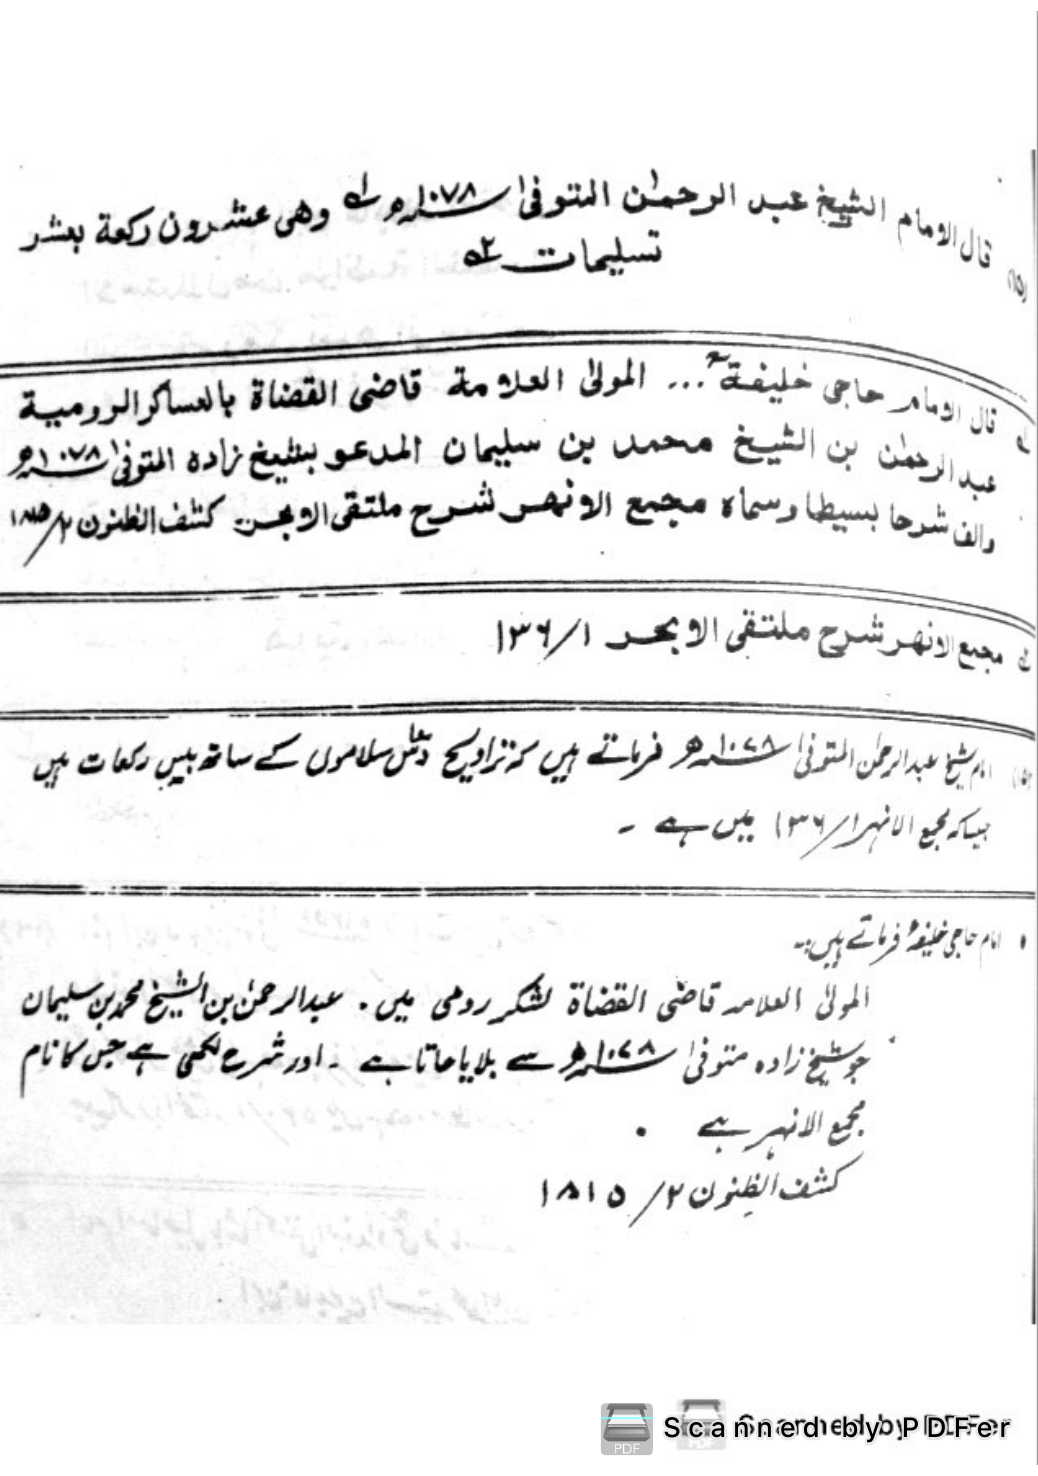 (١٥) قال الامام الشيخ عبد الرحمٰن المتوفیٰ سنه ١٠٧٨ھ لہ وهی عشرون ركعة بعشر
تسليمات ٢ہ
لہ قال الامام حاجی خليفة ... المولیٰ العلامة قاضی القضاة بالعساكر الرومية
عبدالرحمٰن بن الشيخ محمد بن سليمان المدعو بشيخ زاده المتوفیٰ سنه ١٠٧٨ھ
والف شرحا بسيطا وسماه مجمع الانهر شرح ملتقی الابحر كشف الظنون ٢/١٨١٥
٢ہ مجمع الانهر شرح ملتقی الابحر ١/١٣٦
(١٥) امام شیخ عبدالرحمٰن المتوفیٰ سنه ١٠٧٨ھ فرماتے ہیں کہ تراویح دس سلاموں کے ساتھ بیس رکعات ہیں
جیسا کہ مجمع الانہر ١/١٣٦ میں ہے ۔
١ امام حاجی خلیفہؒ فرماتے ہیں:۔
المولیٰ العلامہ قاضی القضاة لشکر رومی ہیں ۔ عبدالرحمٰن بن الشیخ محمد بن سلیمان
جو شیخ زادہ متوفیٰ سنه ١٠٧٨ھ سے بلایا جاتا ہے ۔ اور شرح لکھی ہے جس کا نام
مجمع الانہر ہے ۔
کشف الظنون ٢/١٨١٥
PDF Scanned by PDFer